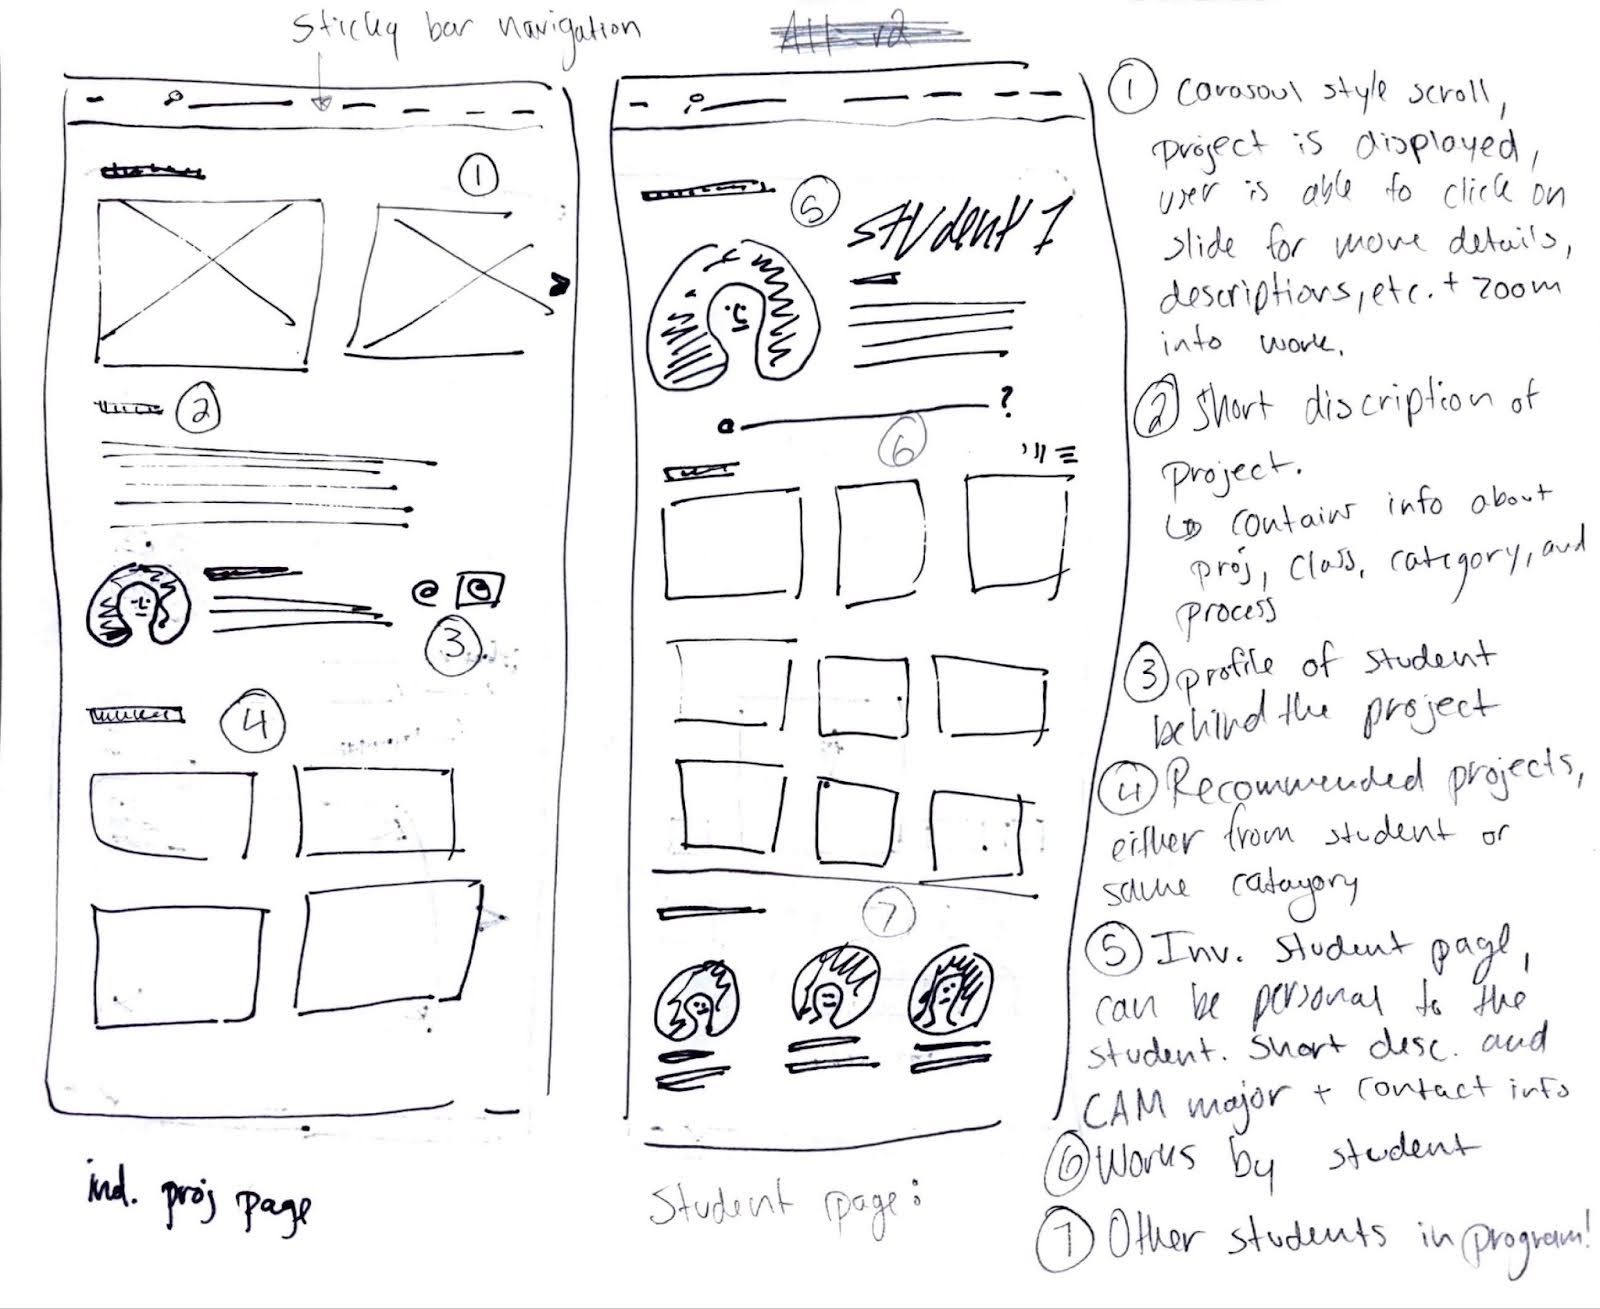 Sticky bar navigation
1
2
3
4
ind. proj page
5
Student 1
?
6
7
Student page:
1 carasoul style scroll,
project is displayed,
user is able to click on
slide for more details,
descriptions, etc. + zoom
into work.
2 Short discription of
project.
↳ contains info about
proj, class, category, and
process
3 profile of student
behind the project
4 Recommended projects,
either from student or
same catagory
5 Inv. student page,
can be personal to the
student. Short desc. and
CAM major + contact info
6 Works by student
7 Other students in program!